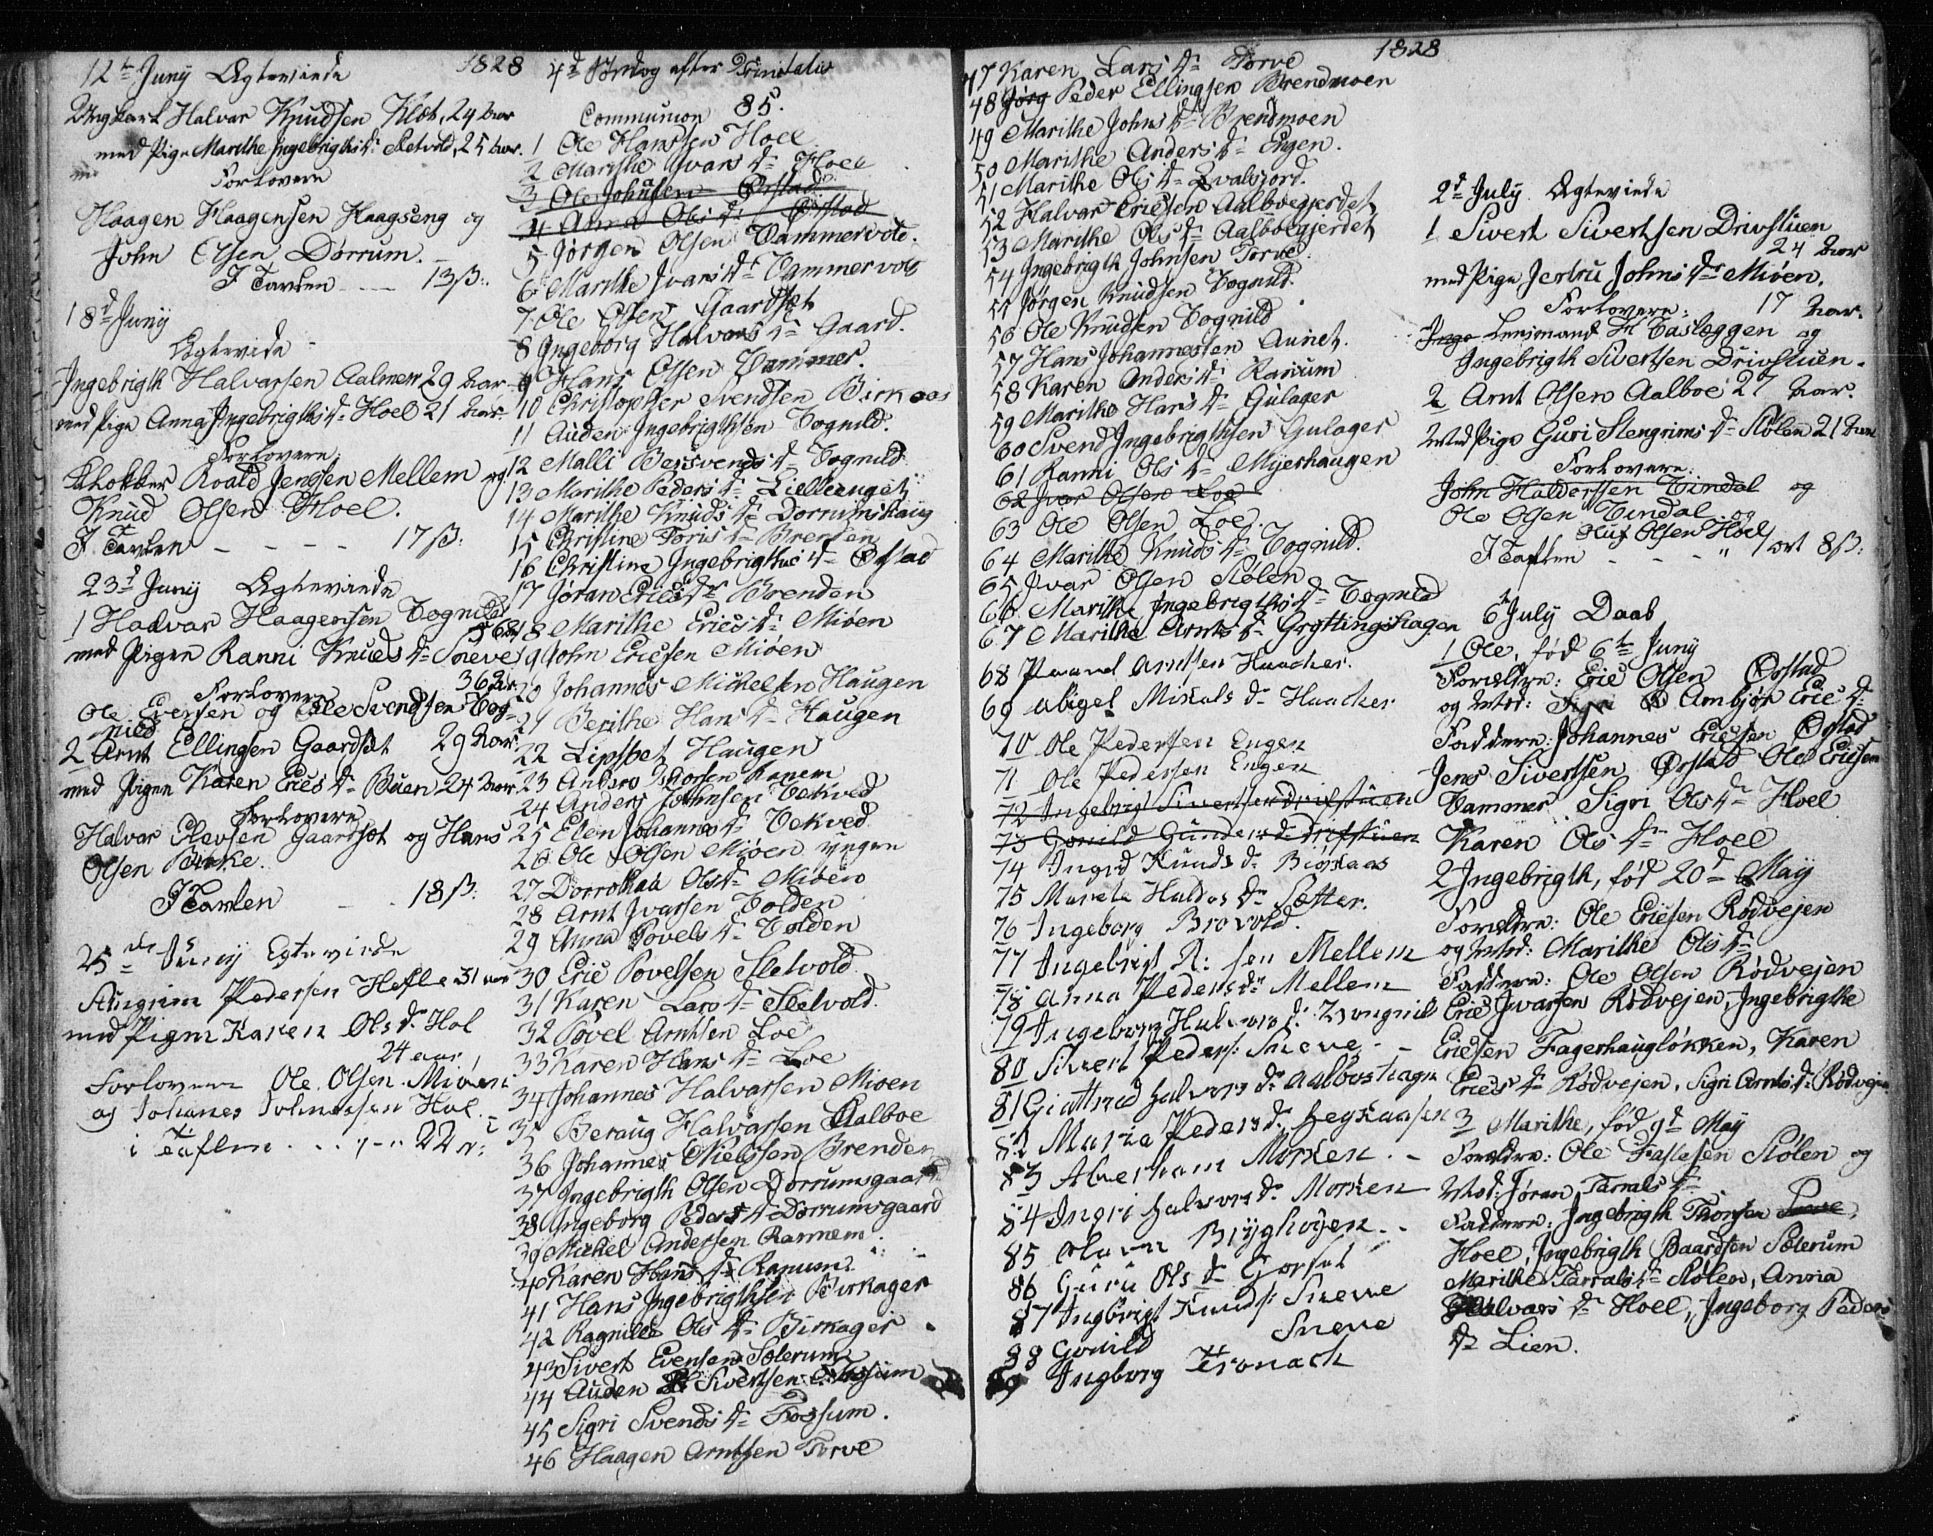 12te Juny Ægteviede 1828
Ungkarl Halvar Knudsen Kløt, 24 Aar
med Pige Marithe Ingebrigtsd. Sletvold, 25 Aar.
Forlovere
Haagen Haagensen Haagseng og
John Olsen Dørrum.
I Tavlen 13 ß.
18d Juny
Ægteviede
Ingebrigth Halvarsen Aalmen 29 Aar
med Pige Anna Ingebrigths d. Hoel 21 Aar
Forlovere
Klokker Roald Jenssen Mellem og
Knud Olsen Hoel.
I Tavlen - - - - 17 ß.
23d Juny Ægteviede
1 Halvar Haagensen Tognild
med Pigen Ranni Knuds d. Sneve
36 Aar
Forlovere
Ole Evensen og Ole Svendsen Tog-
nild
2 Arnt Ellingsen Gaardsøt 29 Aar
med Pigen Karen Erics d. Buen 24 Aar
Forlovere
Halvar Olevsen Gaardsøt og Hans
Olsen Birke.
I Tavlen 18 ß.
25de Juny Egteviede
Pedersen Hefle 31 aar
med Pigen Karen Ols d. Hol
24 aar
Forlovere Ole Olsen Miøen
og Johanes Johnessen Hol
i Taflen 22 ß.
4d Søndag efter Trinitatis
Communion 85.
1 Ole Hanssen Hoel
2 Marithe Ivars d. Hoel
3 Ole Johnsen Ørstad
4 Anna Ols d. Ørstad
5 Jørgen Olsen Tammervole.
6 Marithe Ivars d. Tammervold
7 Ole Olsen Gaardsøt
8 Ingeborg Halvars d. Gaard.
9 Hans Olsen Tammer.
10 Christopher Svendsen Birkaas
11 Auden Ingebrigthsen Tognild.
12 Malli Bersvends d. Tognild
13 Marithe Peders d. Lilleenget
14 Marithe Knuds d. Dorrumshaug
15 Christine Toris d. Brenden
16 Christine Ingebrigths d. Ørstad
17 Jøran Erics d. Brenden
18 Marithe Erics d. Miøen
19 John Ericsen Miøen
20 Johannes Mickelsen Haugen
21 Berithe Hans d. Haugen
22 Lipsbet Haugen
23 Anders Ranem
24 Anders Johnsen Tekved
25 Elen Johannes d. Tekved
26 Ole Olsen Miøen yngre
27 Dorrothea Ols d. Miøen
28 Arnt Ivarsen Tolden
29 Anna Povels d. Tolden
30 Eric Povelsen Sletvold
31 Karen Lars d. Sletvold.
32 Povel Arntsen Loe
33 Karen Hans d. Loe
34 Johannes Halvarsen Mioen
35 Beraug Halvarsen Aalboe
36 Johannes Nielssen Brenden
37 Ingebrigth Olsen Dorrumsgaard
38 Ingeborg Peders d. Dorrumsgaard
39 Mickel Andersen Rannem
40 Karen Hans d. Ranum
41 Hans Ingebrigthsen Birkager
42 Ragnild Ols d. Birkager
43 Sivert Evensen Sølerum
44 Auden Sivertsen Fossum
45 Sigri Svends d. Fossum.
46 Haagen Arntsen Torve
1828
47 Karen Lars d. Torve
48 Jørg Peder Ellingsen Brendmoen
49 Marithe Johns d. Brendmoen
50 Marithe Anders d. Engen.
51 Marithe Ols d. Hvalsjord.
52 Halvar Ericsen Aalboegjerdet
53 Marithe Ols d. Aalboegjerdet
54 Ingebrigth Johnsen Torve
55 Jørgen Knudsen Tognild.
56 Ole Knudsen Tognild
57 Hans Johannessen Aunet.
58 Karen Anders d. Ranum
59 Marithe Hans d. Gulager
60 Svend Ingebrigthsen Gulager
61 Ranni Ols d. Myerhaugen
62 Ivar Olsen Loe
63 Ole Olsen Loe.
64 Marithe Knuds d. Tognild.
65 Ivar Olsen Stølen
66 Marithe Ingebrigths d. Tognild
67 Marithe Arnts d. Gryttingshagen
68 Paavel Arntsen Haacker.
69 Abigel Mikals d. Haacker
70 Ole Pedersen Engen
71 Ole Pedersen Engen
72 Ingebrigt Sivertsen Drifstuen
73 Gonild Gunders d. Drifstuen
74 Ingrd Knuds d. Biørkaas
75 Marete Haldos d. Sætter.
76 Ingeborg Brovold.
77 Ingebrigt R: sen Mellem
78 Anna Peders d. Mellem
79 Ingeborg Halvors d. Tongnild
80 Sivert Peders: Sneve
81 Giattrud Halvors d. Aalboshagen
82 Peders d.
83 Aberham Morken
84 Ingri Halvors d. Morken
85 Bryghøyen
86 Guru Ols d. Gorset
87 Ingbrigt Knuds: Sneve
88 Gonild Sneve
89 Ingborg Tronack
2d July Ægteviede
1 Sivert Sivertsen Drivstuen
24 Aar
med Pige Jertru Johns d. Miøen.
17 Aar.
Forlovere:
Inge Lensmand H Casteggen og
Ingebrigth Sivertsen Drivstuen.
2 Arnt Olsen Aalboe 27 Aar.
Med Pige Guri Stengrims d. Stølen 21 Aar
Forlovere:
John Haldorssen Vindal og
Ole Olsen Vindal og
Olsen Hoel
I Taflen - - " 1 ort 8 ß:
6 July Daab
1 Ole, fød 6te Juny
Forældre: Eric Olsen Ørstad
og Mod: Ambjør Eric d.
Faddere: Johannes Ericsen Ørstad
Jens Sivertsen Ørstad Ole Ericsen
Tammer Sigri Ols d. Hoel
Karen Ols d. Hoel
2 Ingebrigth, fød 20de May
Forældre: Ole Ericsen Rødvejen
og Mod: Marithe Ols d.
Faddere: Ole Olsen Rødvejen
Eric Ivarsen Rødvejen, Ingebrigthe
Ericsen Fagerhaugløkken, Karen
Erics d. Rødvejen, Sigri Arnts d. Rødvejen
3 Marithe, fød 9d May
Forældre: Ole Stølen og
Mod: Jøran Tarrals d.
Faddere: Ingebrigth Thorsen Sneve,
Hoel, Ingebrigth Baardsen Sølerum
Marithe Tarrals d. Stølen, Anna
Halvars d. Hoel, Ingeborg Peders
d. Lien.